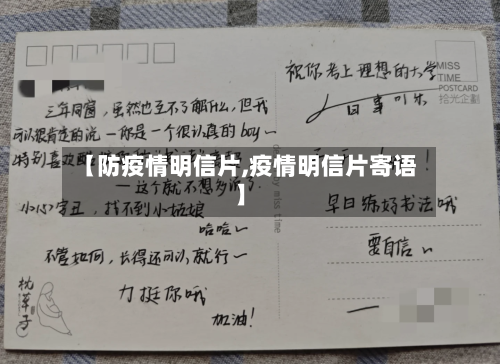 三年同窗，虽然也互不了解什么，但我
可以很肯定的说一你是一个很认真的boy~
特别喜欢
【防疫情明信片,疫情明信片寄语
】
一这方就不想多说了
小心字丑，找不到小姑娘
哈哈~
不管如何，长得还可以就行一
力挺你哦
加油！
枕草子
祝你考上理想的大学
MISS
TIME
POSTCARD
拾光企劃
早日练好书法哦
要自信~